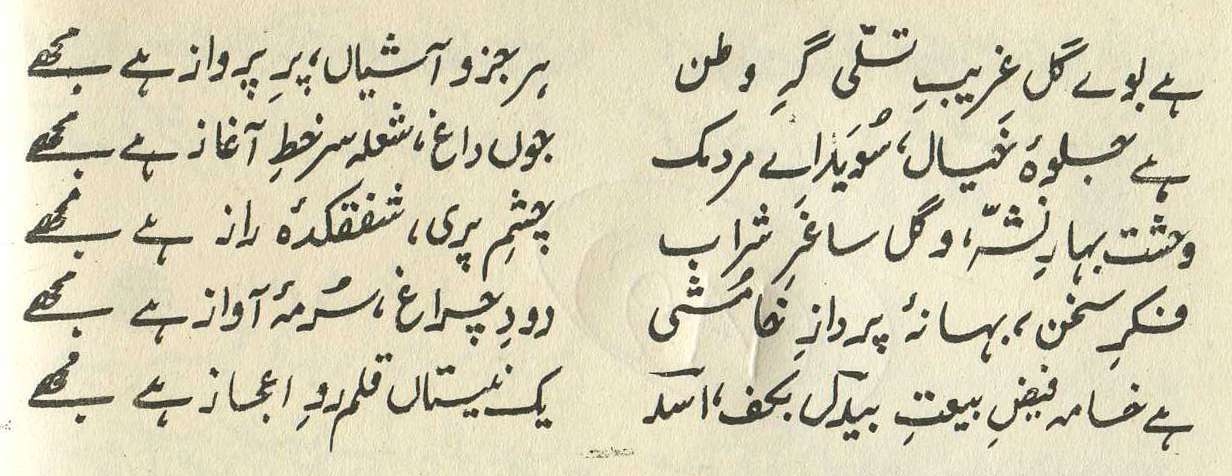 ہے بوے گل غریبِ تسلّی گرِ وطن ہر جزو آشیاں، پرِ پرواز ہے مجھے
ہے جلوۂ خیال، سُویَداے مردمک جوں داغ، شعلہ سر خطِ آغاز ہے مجھے
وحشت بہارِ نشّہ، و گل ساغَرِ شراب چشمِ پری، شفقکدۂ راز ہے مجھے
فکرِ سخن، بہانۂ پردازِ خامُشی دودِ چراغ، سُرمۂ آواز ہے مجھے
ہے خامہ فیضِ بیعتِ بیدلؔ بکف، اسدؔ یک نیستاں قلمروِ اعجاز ہے مجھے